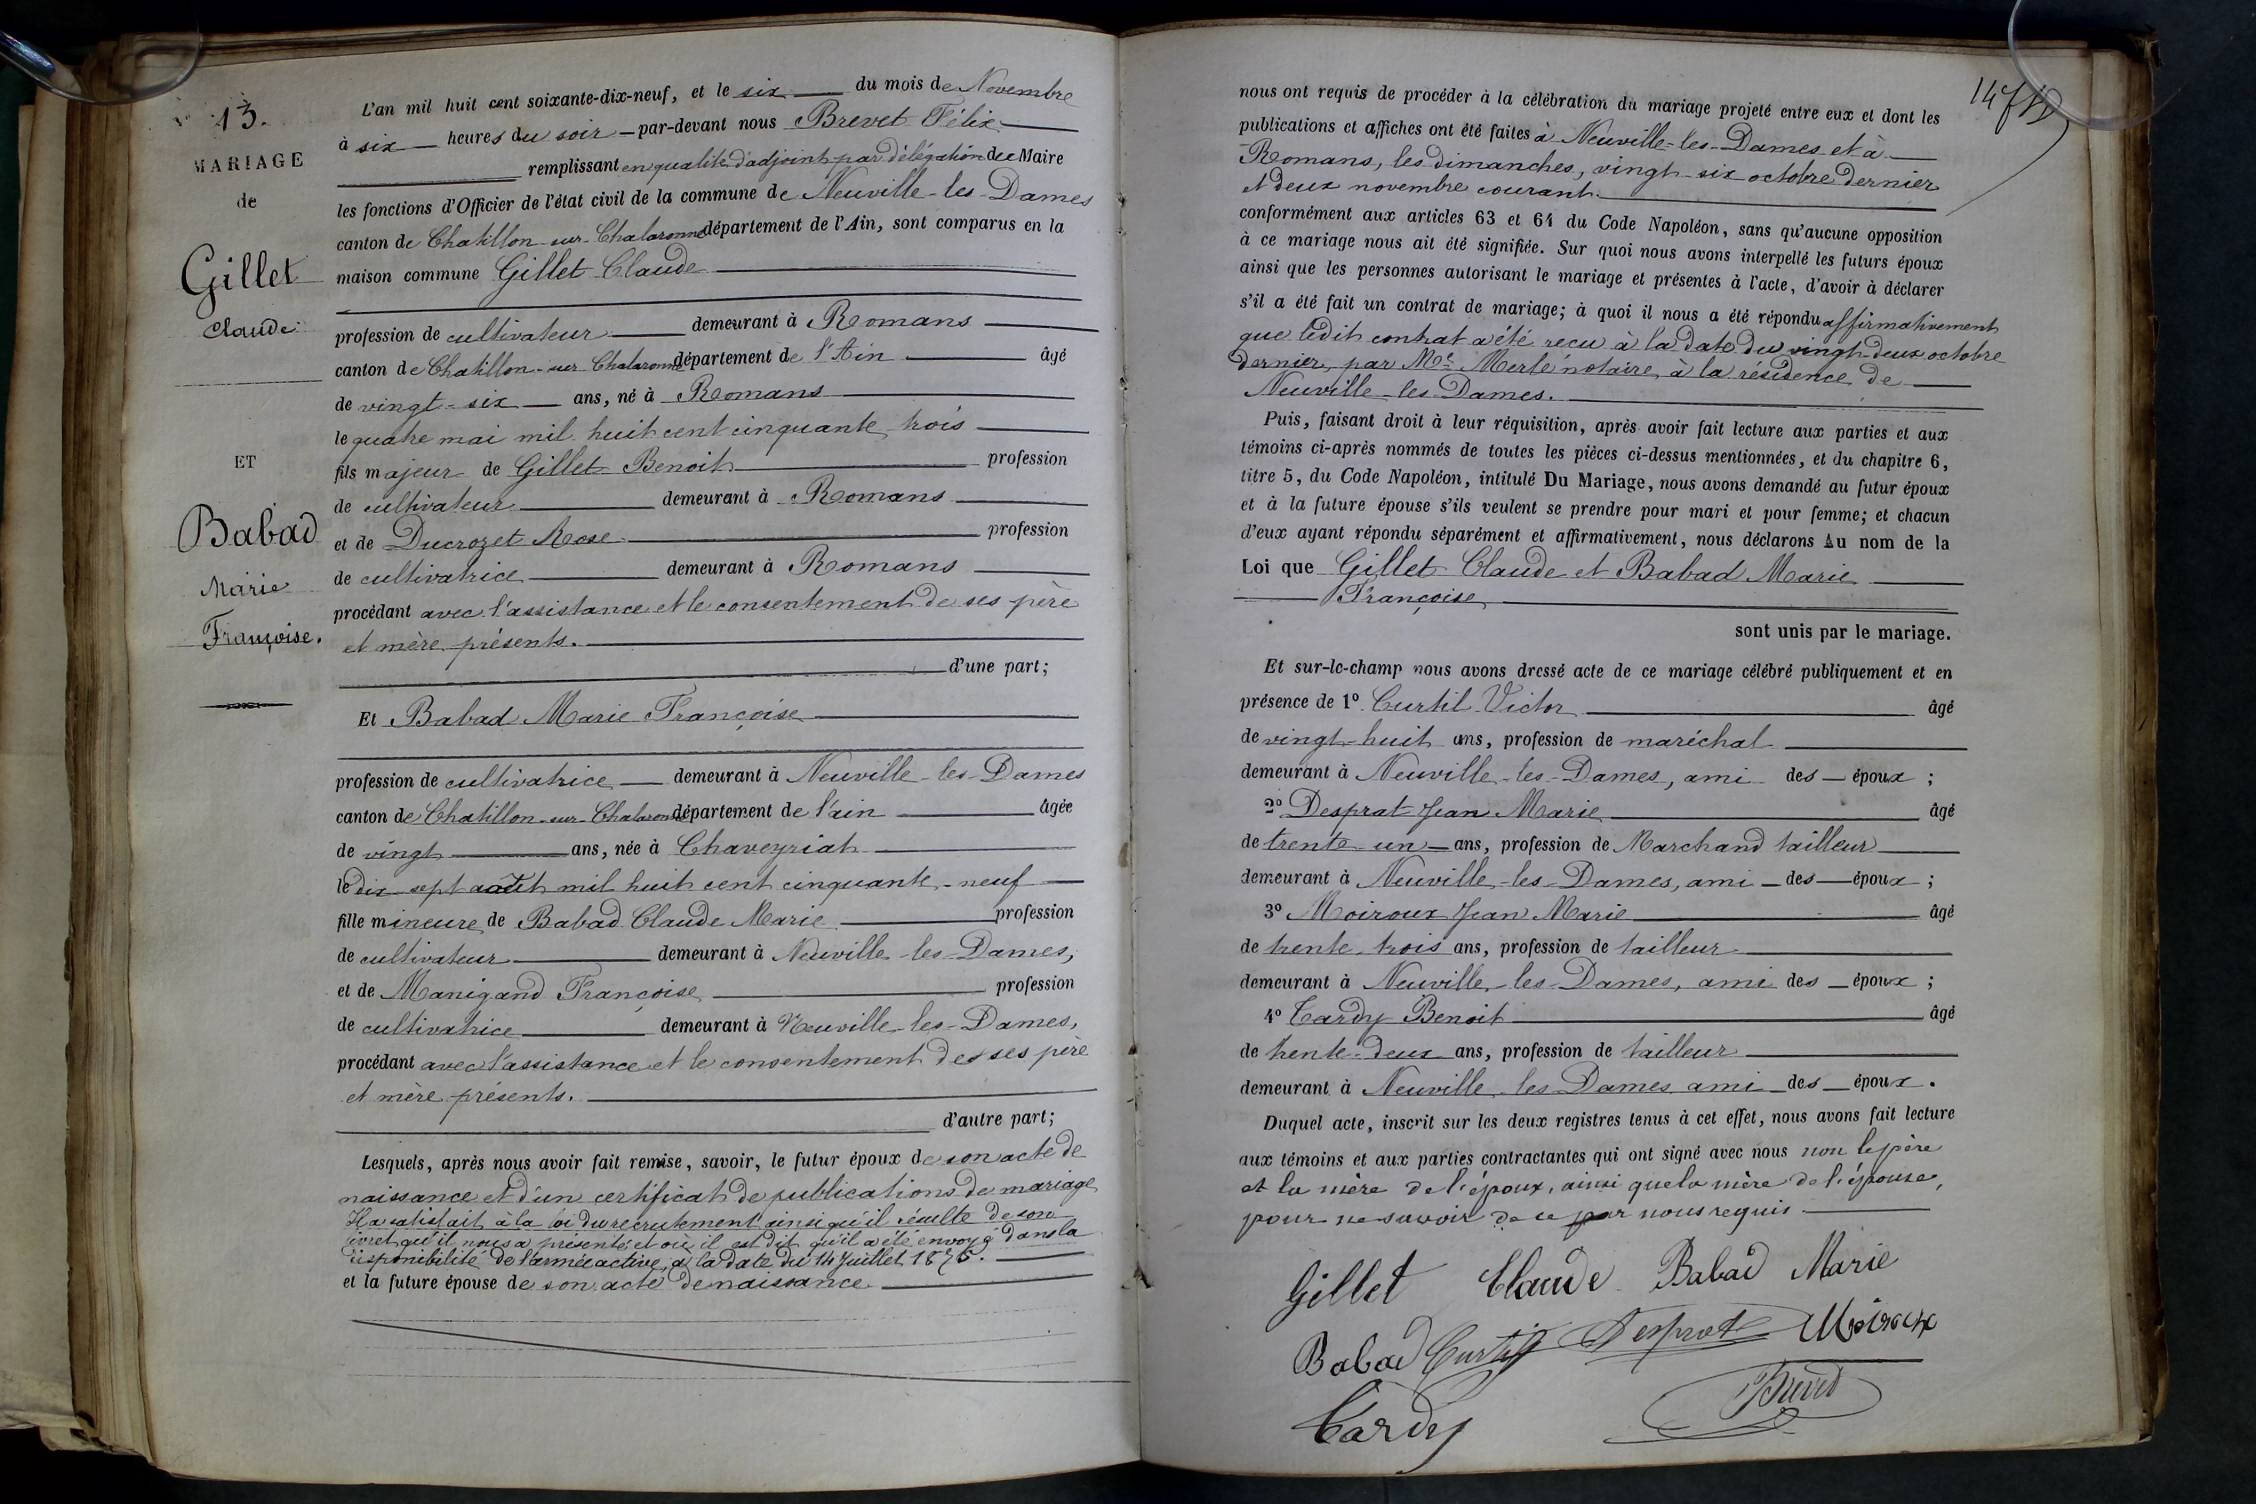 13.
MARIAGE
de
Gillet
Claude
ET
Babad
Marie
Françoise.
L'an mil huit cent soixante-dix-neuf, et le six du mois de Novembre
à six heures du soir par-devant nous Brevet Félix
remplissant en qualité d'adjoint par délégation du Maire
les fonctions d'Officier de l'état civil de la commune de Neuville-les-Dames
canton de Chatillon-sur-Chalaronne département de l'Ain, sont comparus en la
maison commune Gillet Claude
profession de cultivateur demeurant à Romans
canton de Chatillon-sur-Chalaronne département de l'Ain âgé
de vingt-six ans, né à Romans
le quatre mai mil huit cent cinquante trois
fils majeur de Gillet Benoit profession
de cultivateur demeurant à Romans
et de Ducrozet Rose profession
de cultivatrice demeurant à Romans
procédant avec l'assistance et le consentement de ses père
et mère présents.
d'une part;
Et Babad Marie Françoise
profession de cultivatrice demeurant à Neuville-les-Dames
canton de Chatillon-sur-Chalaronne département de l'ain âgée
de vingt ans, née à Chaveyriat
le dix-sept août mil huit cent cinquante-neuf
fille mineure de Babad Claude Marie profession
de cultivateur demeurant à Neuville-les-Dames,
et de Manigand Françoise profession
de cultivatrice demeurant à Neuville-les-Dames,
procédant avec l'assistance et le consentement des ses père
et mère présents.
d'autre part;
Lesquels, après nous avoir fait remise, savoir, le futur époux de son acte de
naissance et d'un certificat de publications de mariage
Il a satisfait à la loi du recrutement ainsi qu'il résulte de son
livret qu'il nous a présenté et où il est dit qu'il a été envoyé dans la
disponibilité de l'armée active, à la date du 14 Juillet 1876.
et la future épouse de son acte de naissance
147
nous ont requis de procéder à la célébration du mariage projeté entre eux et dont les
publications et affiches ont été faites à Neuville-les-Dames et à
Romans, les dimanches, vingt-six octobre dernier
et deux novembre courant.
conformément aux articles 63 et 64 du Code Napoléon, sans qu'aucune opposition
à ce mariage nous ait été signifiée. Sur quoi nous avons interpellé les futurs époux
ainsi que les personnes autorisant le mariage et présentes à l'acte, d'avoir à déclarer
s'il a été fait un contrat de mariage; à quoi il nous a été répondu affirmativement
que ledit contrat a été reçu à la date du vingt-deux octobre
dernier, par Me Merle notaire, à la résidence de
Neuville-les-Dames.
Puis, faisant droit à leur réquisition, après avoir fait lecture aux parties et aux
témoins ci-après nommés de toutes les pièces ci-dessus mentionnées, et du chapitre 6,
titre 5, du Code Napoléon, intitulé Du Mariage, nous avons demandé au futur époux
et à la future épouse s'ils veulent se prendre pour mari et pour femme; et chacun
d'eux ayant répondu séparément et affirmativement, nous déclarons Au nom de la
Loi que Gillet Claude et Babad Marie
Françoise
sont unis par le mariage.
Et sur-le-champ nous avons dressé acte de ce mariage célébré publiquement et en
présence de 1º Curtil Victor âgé
de vingt-huit ans, profession de maréchal
demeurant à Neuville-les-Dames, ami des époux ;
2º Desprat Jean Marie âgé
de trente-un ans, profession de Marchand tailleur
demeurant à Neuville-les-Dames, ami des époux ;
3º Moiroux Jean Marie âgé
de trente trois ans, profession de tailleur
demeurant à Neuville-les-Dames, ami des époux ;
4º Tardy Benoit âgé
de trente-deux ans, profession de tailleur
demeurant à Neuville les Dames ami des époux.
Duquel acte, inscrit sur les deux registres tenus à cet effet, nous avons fait lecture
aux témoins et aux parties contractantes qui ont signé avec nous non le père
et la mère de l'époux, ainsi que la mère de l'épouse,
pour ne savoir de ce par nous requis
Gillet Claude Babad Marie
Babad Curtil Desprat Moiroux
Tardy Brevet